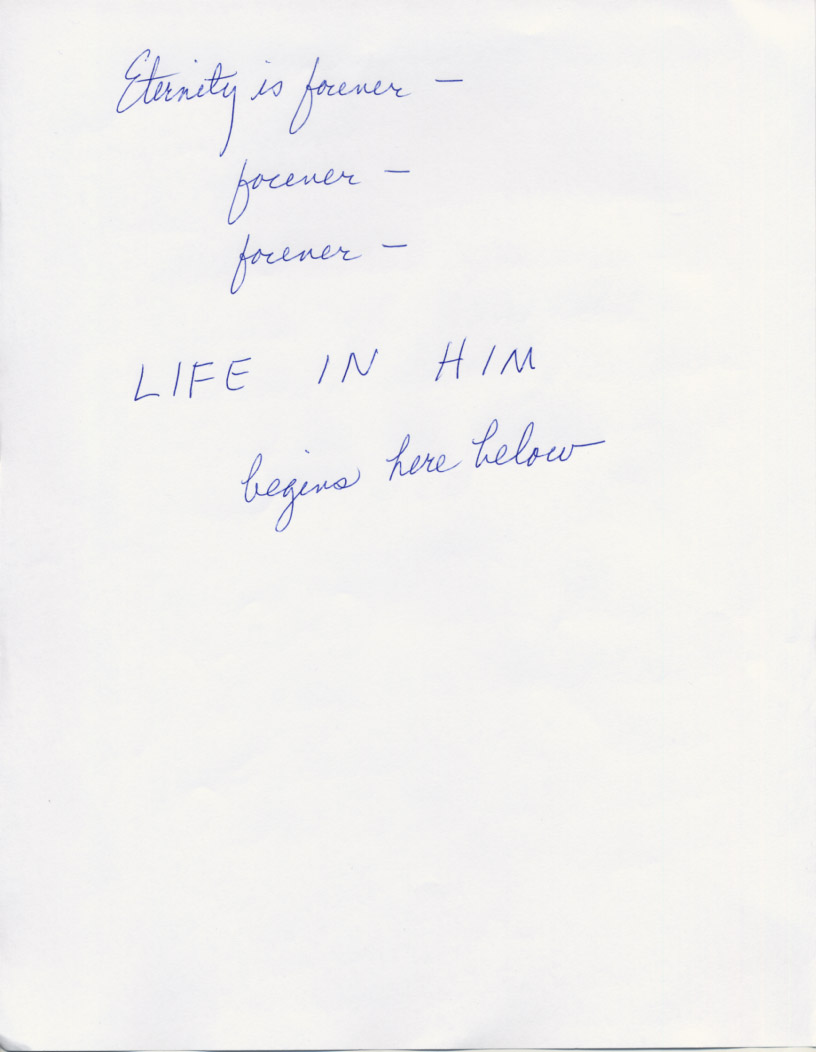 Eternity is forever –
forever –
forever –
LIFE IN HIM
begins here below